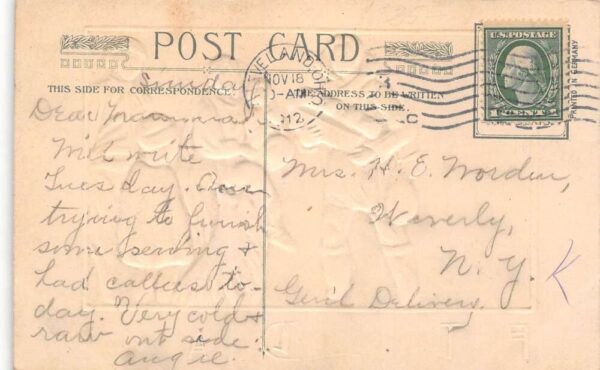 POST CARD
THIS SIDE FOR CORRESPONDENCE.
THE ADDRESS TO BE WRITTEN
ON THIS SIDE
CLEVELAND, OHIO
NOV 18
-AM
1912
U.S. POSTAGE
1 CENT 1
PRINTED IN GERMANY
Sunday
Dear Mamma
Will write
Tuesday. Am
trying to finish
some sewing &
had callers to-
day. Very cold &
raw out side.
Angie.
Mrs. H. E. Worden,
Waverly,
N. Y.
Gen'l Delivery.